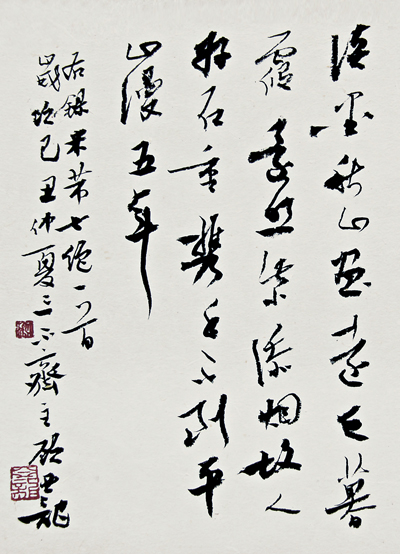 淡墨秋山畫遠天暮
霞還照紫添烟故人
好在重攜手不到平
山漫五年
右錄米芾七絕一首
歲次己丑仲夏三不齋主顧亞龍